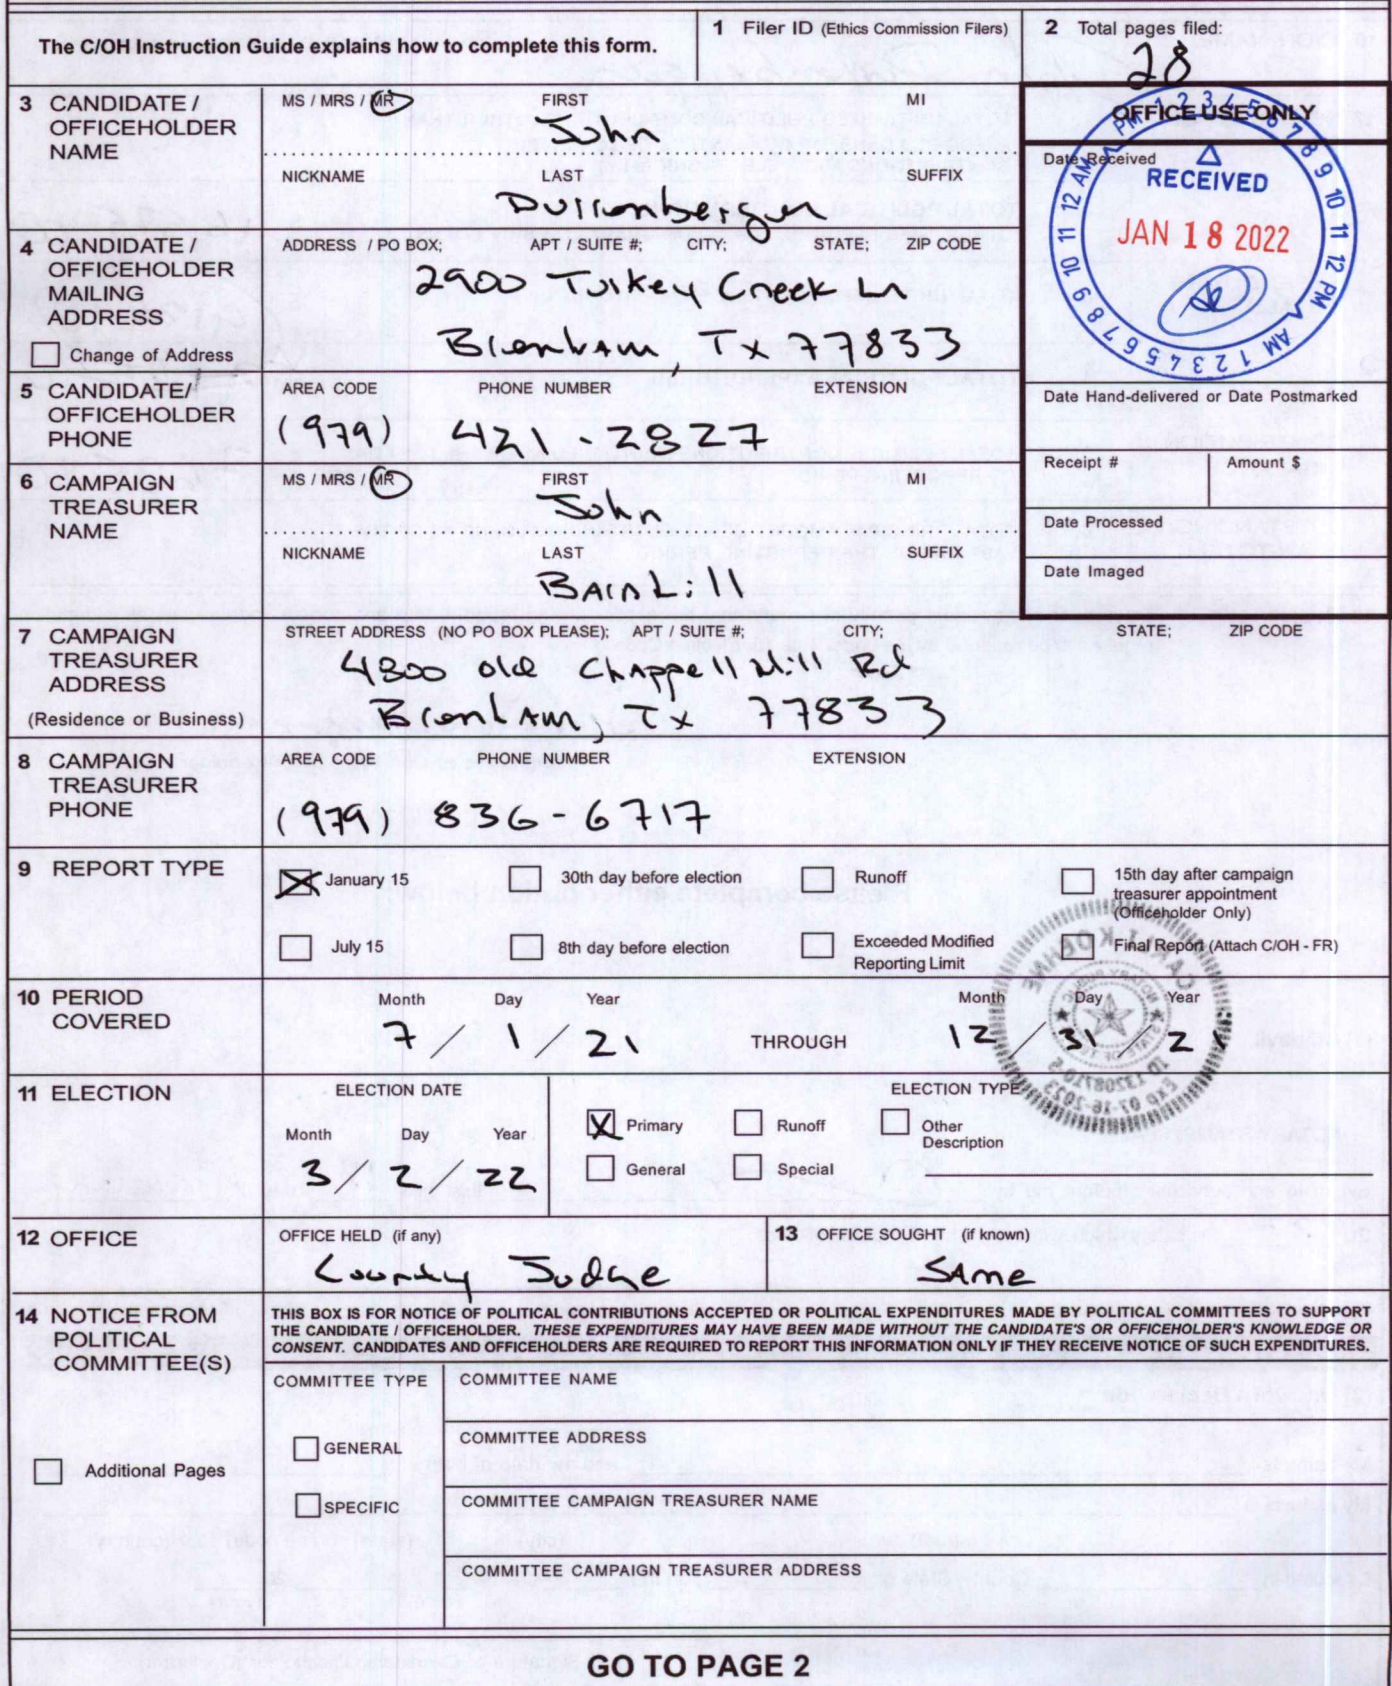 The C/OH Instruction Guide explains how to complete this form.
1 Filer ID (Ethics Commission Filers)
2 Total pages filed:
28
3 CANDIDATE / OFFICEHOLDER NAME
MS / MRS / MR FIRST MI
John
NICKNAME LAST SUFFIX
Durrenberger
OFFICE USE ONLY
Date Received
RECEIVED
JAN 18 2022
4 CANDIDATE / OFFICEHOLDER MAILING ADDRESS
Change of Address
ADDRESS / PO BOX; APT / SUITE #; CITY; STATE; ZIP CODE
2900 Turkey Creek Ln
Brenham, Tx 77833
5 CANDIDATE / OFFICEHOLDER PHONE
AREA CODE PHONE NUMBER EXTENSION
(979) 421-2827
Date Hand-delivered or Date Postmarked
Receipt # Amount $
Date Processed
Date Imaged
6 CAMPAIGN TREASURER NAME
MS / MRS / MR FIRST MI
John
NICKNAME LAST SUFFIX
BArnhill
7 CAMPAIGN TREASURER ADDRESS
(Residence or Business)
STREET ADDRESS (NO PO BOX PLEASE); APT / SUITE #; CITY; STATE; ZIP CODE
4800 old Chappell Mill Rd
BrenhAm, Tx 77833
8 CAMPAIGN TREASURER PHONE
AREA CODE PHONE NUMBER EXTENSION
(979) 836-6717
9 REPORT TYPE
January 15 30th day before election Runoff 15th day after campaign treasurer appointment (Officeholder Only)
July 15 8th day before election Exceeded Modified Reporting Limit Final Report (Attach C/OH - FR)
10 PERIOD COVERED
Month Day Year Month Day Year
7 / 1 / 21 THROUGH 12 / 31 / 21
11 ELECTION
ELECTION DATE
Month Day Year
3 / 2 / 22
ELECTION TYPE
Primary Runoff Other Description
General Special
12 OFFICE
OFFICE HELD (if any)
County Judge
13 OFFICE SOUGHT (if known)
SAme
14 NOTICE FROM POLITICAL COMMITTEE(S)
THIS BOX IS FOR NOTICE OF POLITICAL CONTRIBUTIONS ACCEPTED OR POLITICAL EXPENDITURES MADE BY POLITICAL COMMITTEES TO SUPPORT
THE CANDIDATE / OFFICEHOLDER. THESE EXPENDITURES MAY HAVE BEEN MADE WITHOUT THE CANDIDATE'S OR OFFICEHOLDER'S KNOWLEDGE OR
CONSENT. CANDIDATES AND OFFICEHOLDERS ARE REQUIRED TO REPORT THIS INFORMATION ONLY IF THEY RECEIVE NOTICE OF SUCH EXPENDITURES.
COMMITTEE TYPE
GENERAL
SPECIFIC
Additional Pages
COMMITTEE NAME
COMMITTEE ADDRESS
COMMITTEE CAMPAIGN TREASURER NAME
COMMITTEE CAMPAIGN TREASURER ADDRESS
GO TO PAGE 2